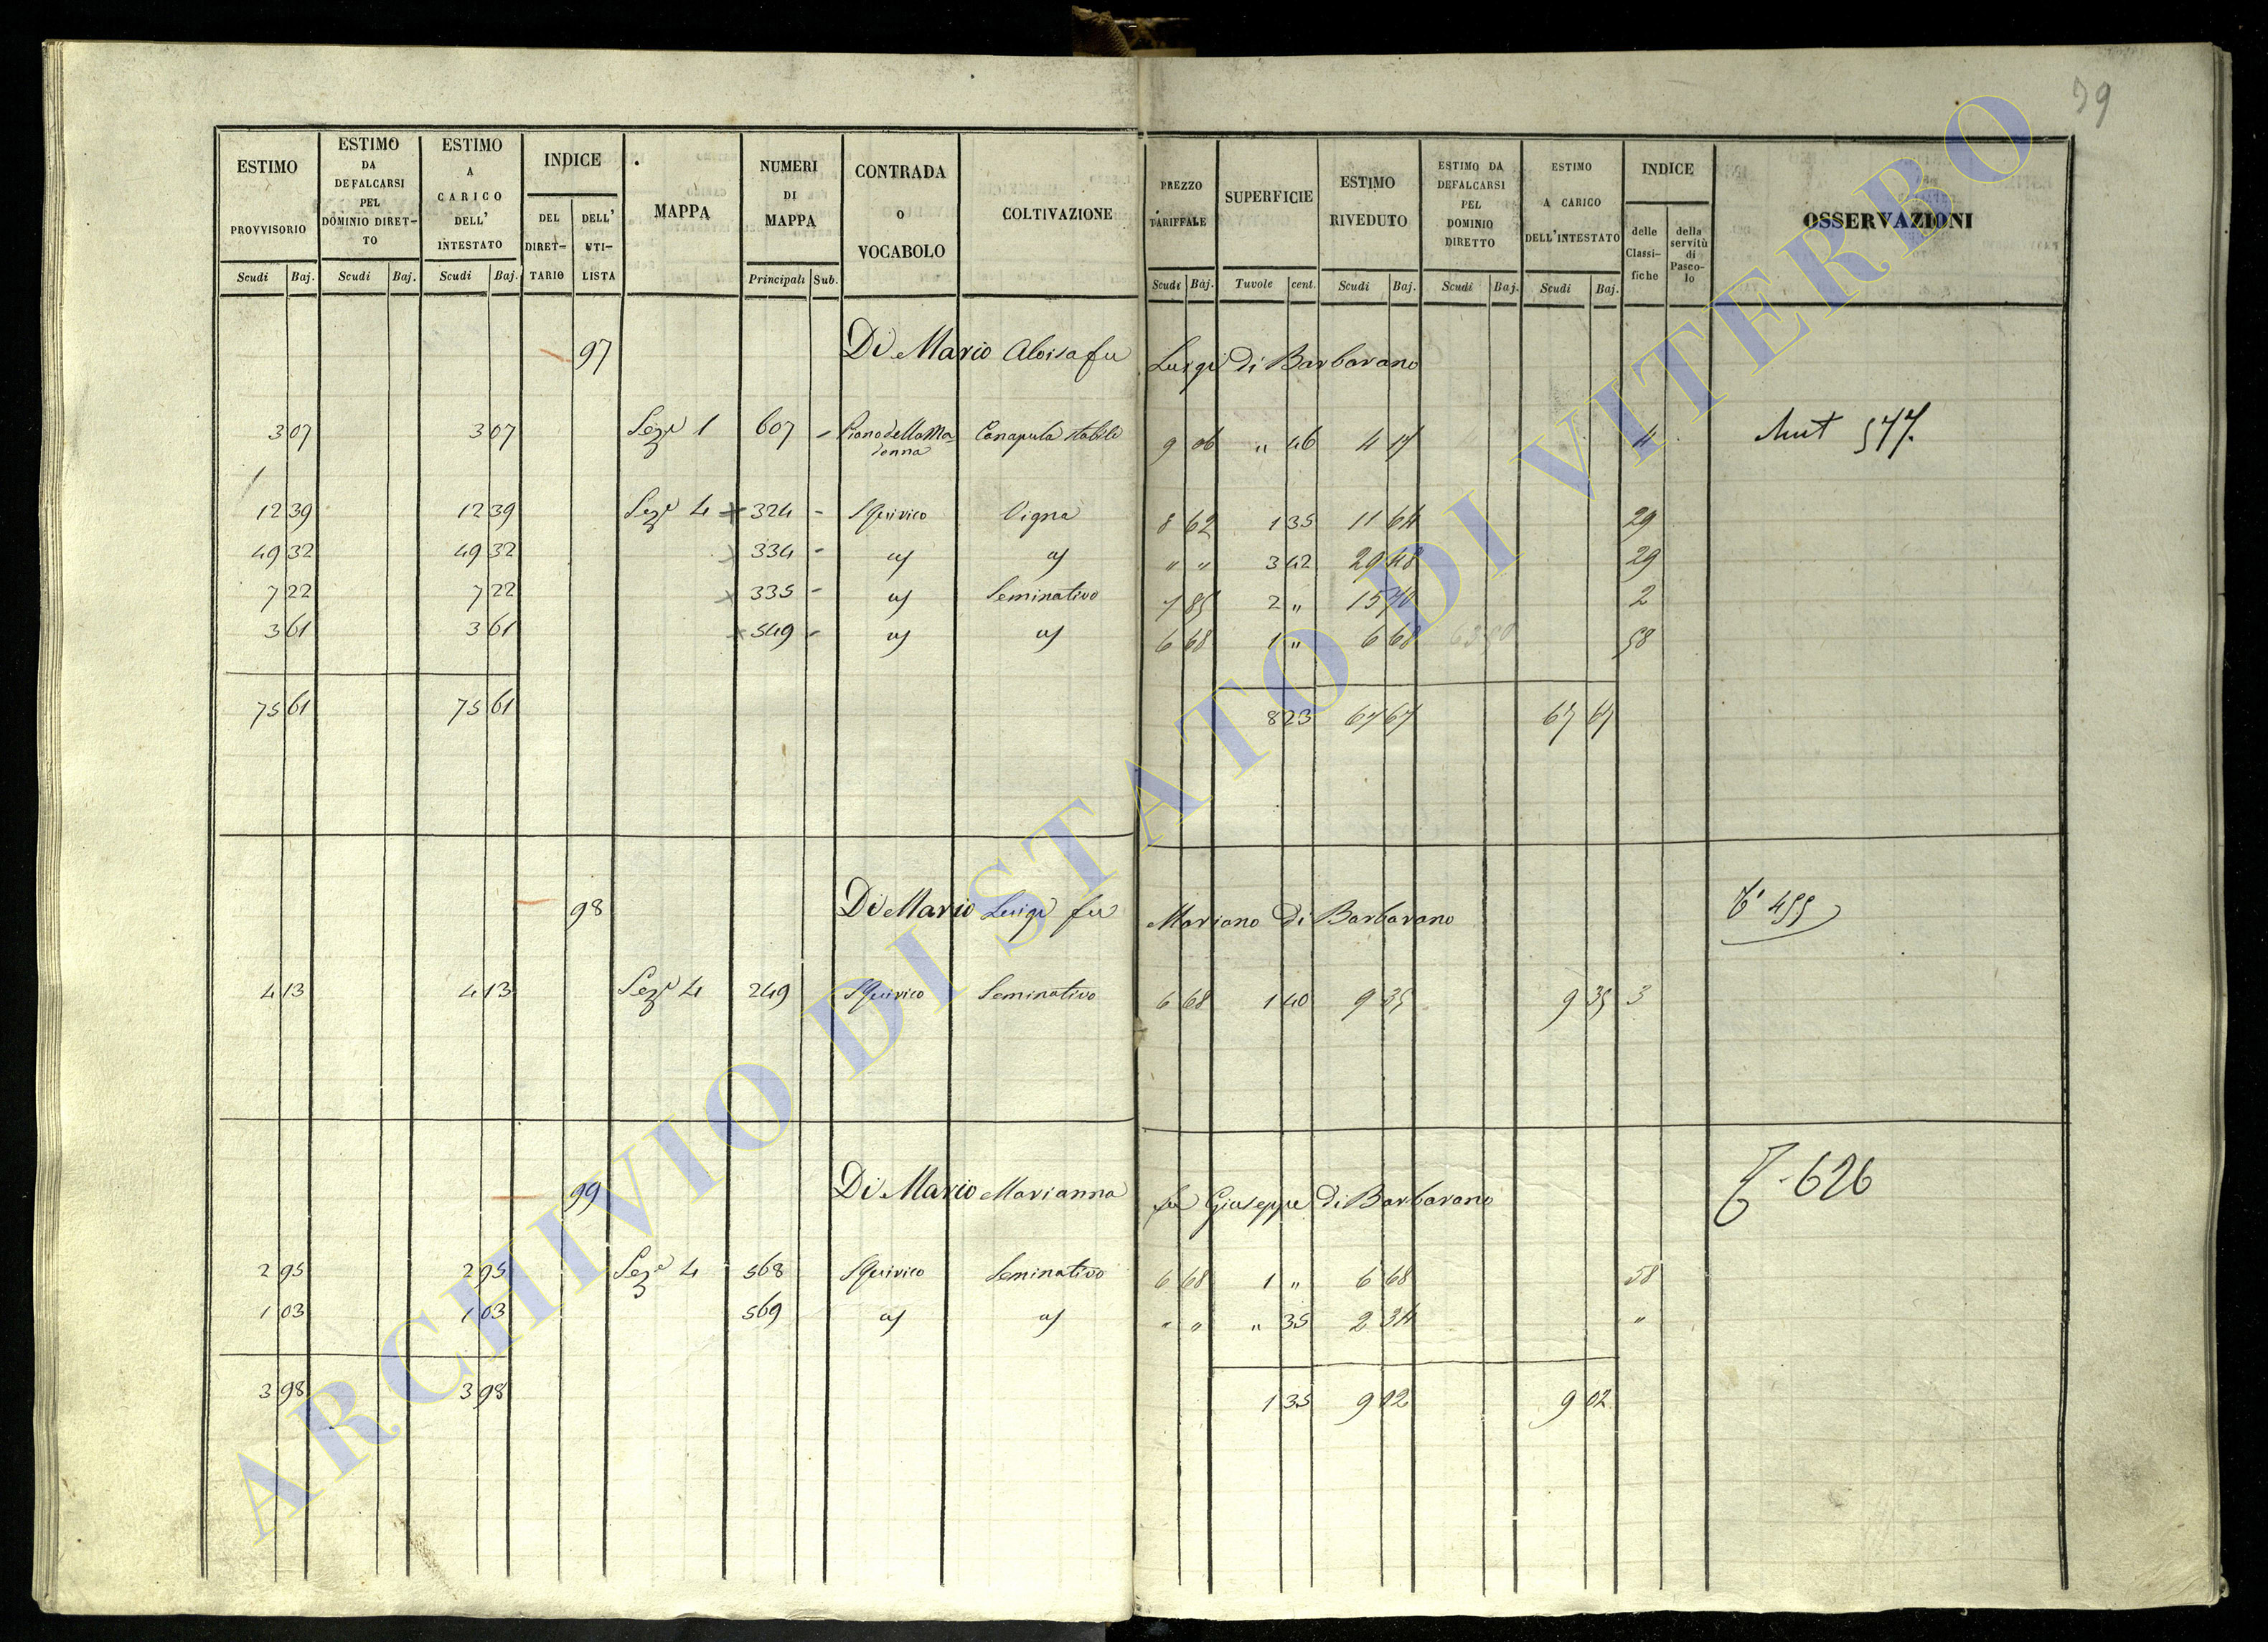 39
ESTIMO PROVVISORIO Scudi Baj. | ESTIMO DA DEFALCARSI PEL DOMINIO DIRET-TO Scudi Baj. | ESTIMO A CARICO DELL' INTESTATO Scudi Baj. | INDICE DEL DIRET-TARIO DELL' UTI-LISTA | MAPPA | NUMERI DI MAPPA Principali Sub. | CONTRADA o VOCABOLO | COLTIVAZIONE | PREZZO TARIFFALE Scudi Baj. | SUPERFICIE Tavole cent. | ESTIMO RIVEDUTO Scudi Baj. | ESTIMO DA DEFALCARSI PEL DOMINIO DIRETTO Scudi Baj. | ESTIMO A CARICO DELL'INTESTATO Scudi Baj. | INDICE delle Classi-fiche della servitù di Pasco-lo | OSSERVAZIONI
97 Di Mario Aloisa fu Luigi di Barbarano
3 07 3 07 Sez.e 1 607 - Piano della Ma Canapula stabile 9 06 " 46 4 17 4 577.
donna
12 39 12 39 Sez.e 4 324 - S Quirico Vigna 8 62 1 35 11 64 29
49 32 49 32 334 - " " 3 42 29 48 29
7 22 7 22 335 - Seminativo 7 85 2 " 15 70 2
3 61 3 61 549 - 6 68 1 " 6 68 58
75 61 75 61 8 23 67 67 67 67
98 Di Mario Luigi fu Mariano di Barbarano 455
4 13 4 13 Sez.e 4 249 S Quirico Seminativo 6 68 1 40 9 35 9 35 3
99 Di Mario Marianna fu Giuseppe di Barbarano 626
2 95 2 95 Sez.e 4 568 S Quirico Seminativo 6 68 1 " 6 68 58
1 03 1 03 569 " " " 35 2 34 "
3 98 3 98 1 35 9 02 9 02
ARCHIVIO DI STATO DI VITERBO